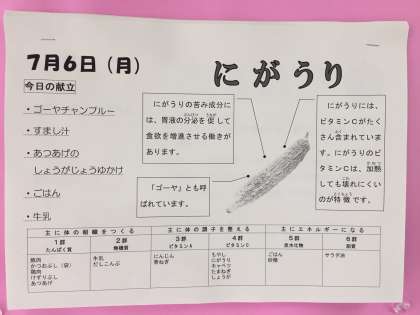 7月6日（月）
にがうり
今日の献立
・ゴーヤチャンプルー
・すまし汁
・あつあげの
しょうがじょうゆかけ
・ごはん
・牛乳
にがうりの苦み成分に
は、胃液の分泌を促して
食欲を増進させる働きが
あります。
「ゴーヤ」とも呼
ばれています。
にがうりには、
ビタミンCがたく
さん含まれていま
す。にがうりのビ
タミンCは、加熱
しても壊れにくい
のが特徴です。
主に体の組織をつくる
主に体の調子を整える
主にエネルギーになる
1群
たんぱく質
2群
無機質
3群
ビタミンA
4群
ビタミンC
5群
炭水化物
6群
脂質
豚肉
かつおぶし（袋）
鶏肉
けずりぶし
あつあげ
牛乳
だしこんぶ
にんじん
青ねぎ
もやし
にがうり
キャベツ
たまねぎ
しょうが
ごはん
砂糖
サラダ油